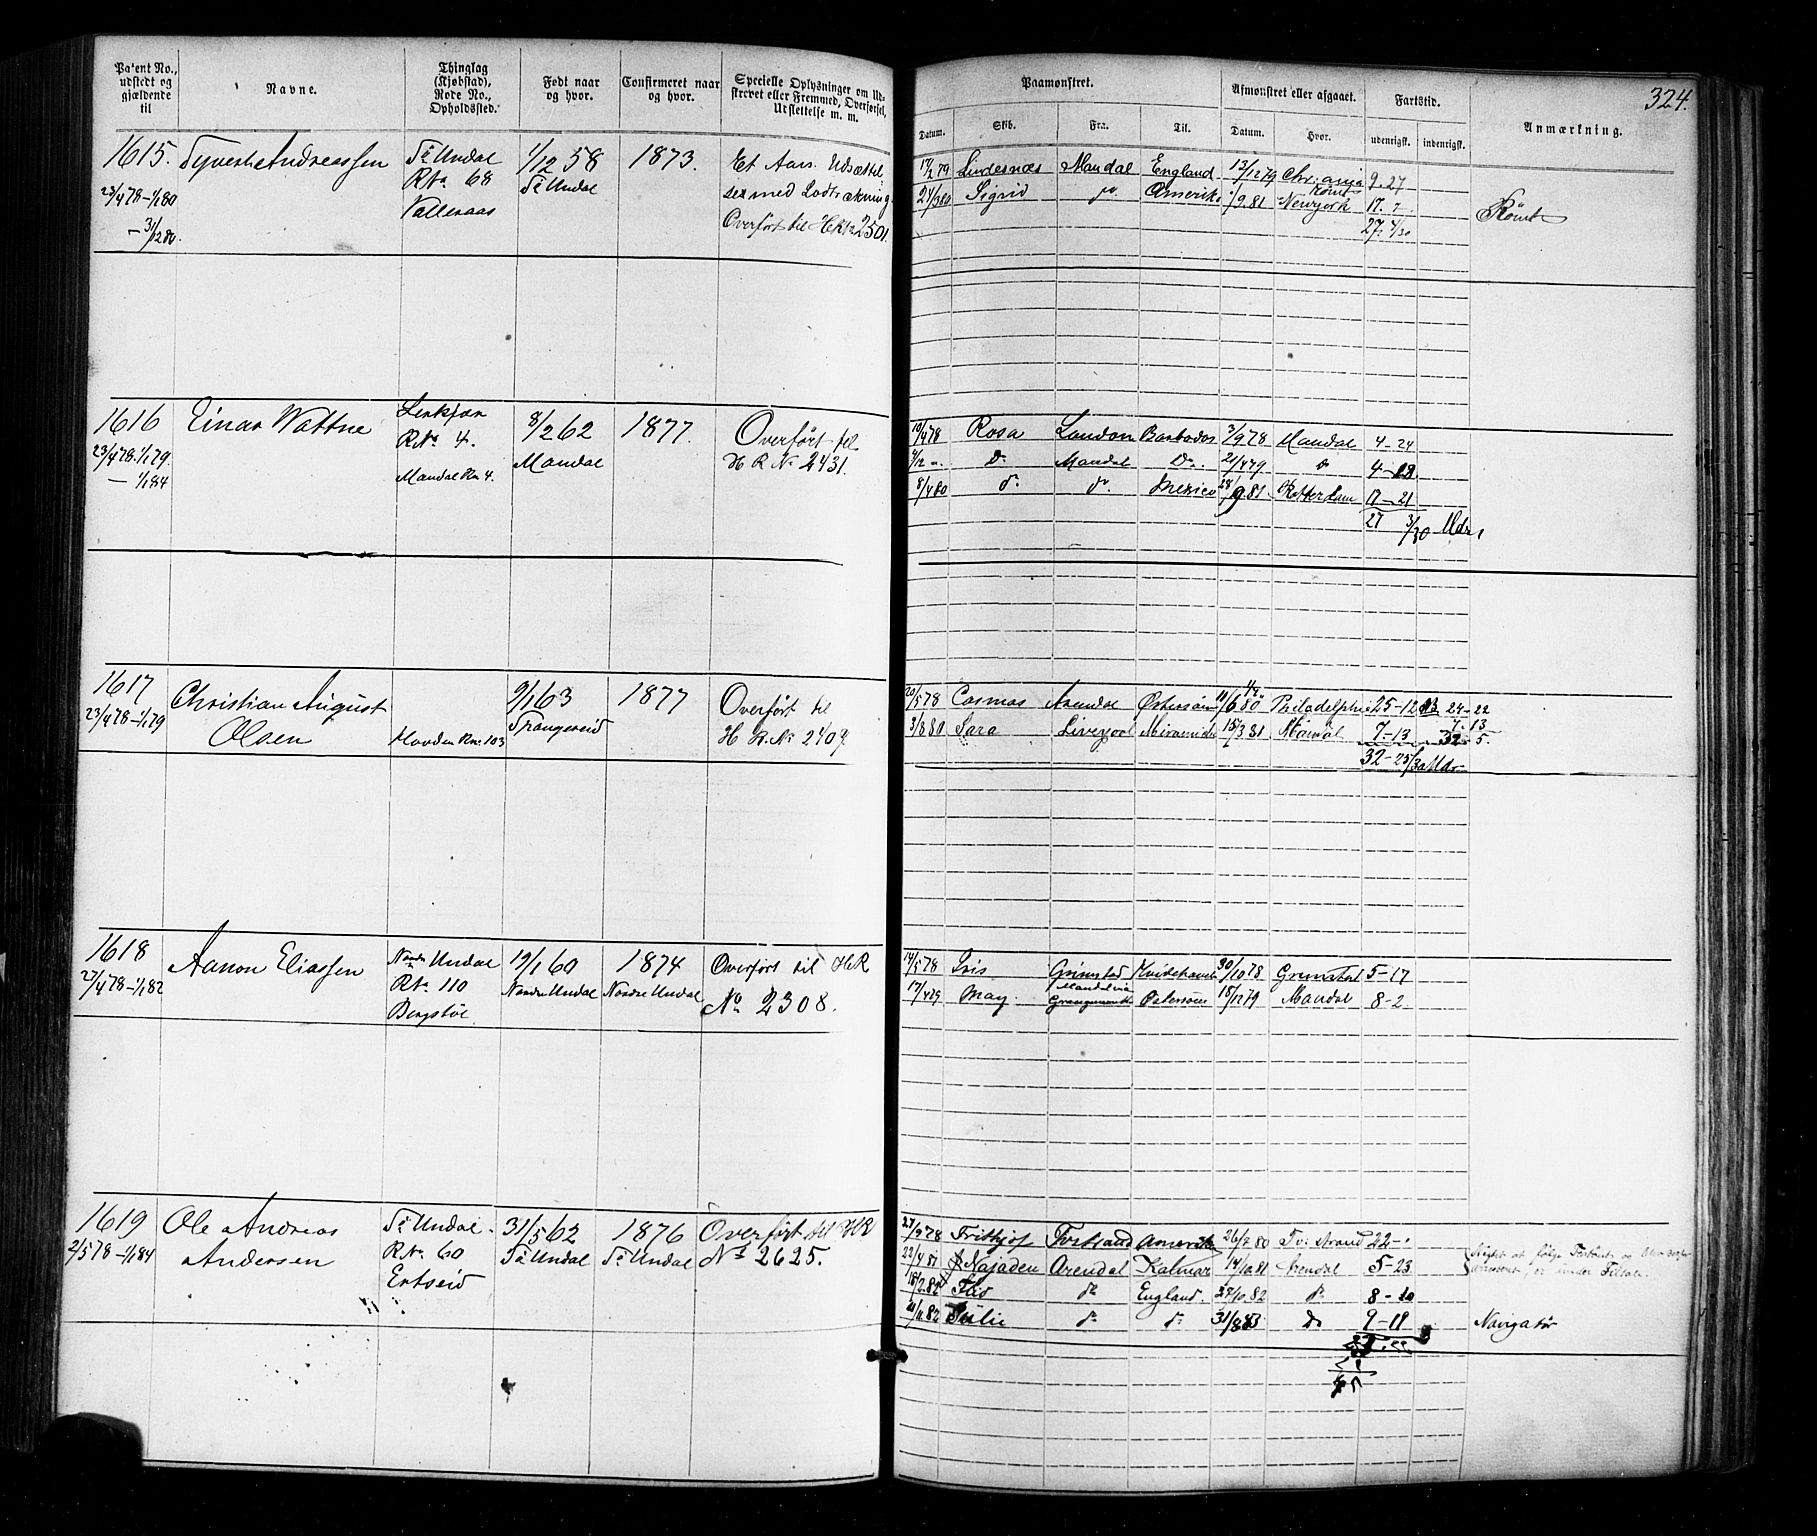 324.
Pa'ent No., udstedt og gjældende til
Navne.
Thinglag (Kjøbstad), Rode No., Opholdssted.
Født naar og hvor.
Confirmeret naar og hvor.
Specielle Oplysninger om Udskrevet eller Fremmed, Overførsel, Udsættelse m. m.
Paamønstret.
Afmønstret eller afgaaet.
Fartstid.
Anmærkning.
Datum. Skib. Fra. Til. Datum. Hvor. udenrigsk. indenrigsk.
1615. Andreassen Sr Undal 1/12 58 1873. Et Aars Udsættel
23/4 78 – 1/1 80 RNo 68 Sr Undal ser med Lodtrækning
– 31/12 80. Valleraas Overført til HR No 2501.
Lindesnæs Mandal England 13/12 79 9.27
24/3 80 Sigrid do Amerika 1/9.81 Newyork 17.7 Rømt
27. 4/30
1616 Einar Wattne R No 4. 8/2 62 1877. Overført til
23/4 78–1/1 79. Mandal H R No 2431.
– 1/1 84 Mandal RNo 4.
19/4 78 Rosa London Barbados 3/9 78 Mandal 4–24
4/12 " Do Mandal Do. 21/4 79 do 4–18
8/4 80 do do Mexico 28/9 81 Rotterdam 17–21
27 3/30 Mdr
1617 Christian August 9/1 63 1877 Overført til
23/4 78–1/1 79 Olsen RNo 103 Spangereid H R No 2407.
20/5 78 Cosmos Arendal Østersøen 11/6 80 Philadelphia 25–12 24–22
3/8 80 Sara Liverpool Miramichi 15/3 81 7–13 7 13
32 5.
32–25/30 Mdr
1618 Aanon Eliassen Nordre Undal 19/1 60 1874 Overført til HR
27/4 78–1/1 82 RNo 110 Nordre Undal Nordre Undal No 2308.
Bergstøl
14/5 78 Iris Grimstad 30/10 78 Grimstad 5–17
Mandal via
17/4 79 May. Grangemouth Østersøen 18/12 79 Mandal 8–2
1619 Ole Andreas Sr Undal 31/5 62 1876 Overført til HR
2/5 78–1/1 84 Andersen RNo 60 Sr Undal Sr Undal No 2625.
Ertseid
27/9 78 Frithjof Tvedestrand Amerika 26/7 80 22–
22/4 81 Najaden Arendal Kalmar 14/10 81 Arendal 5–23
do England. 27/10 82 do 8–10
Julie do do 31/8 83 Do 9–11 Navigatør